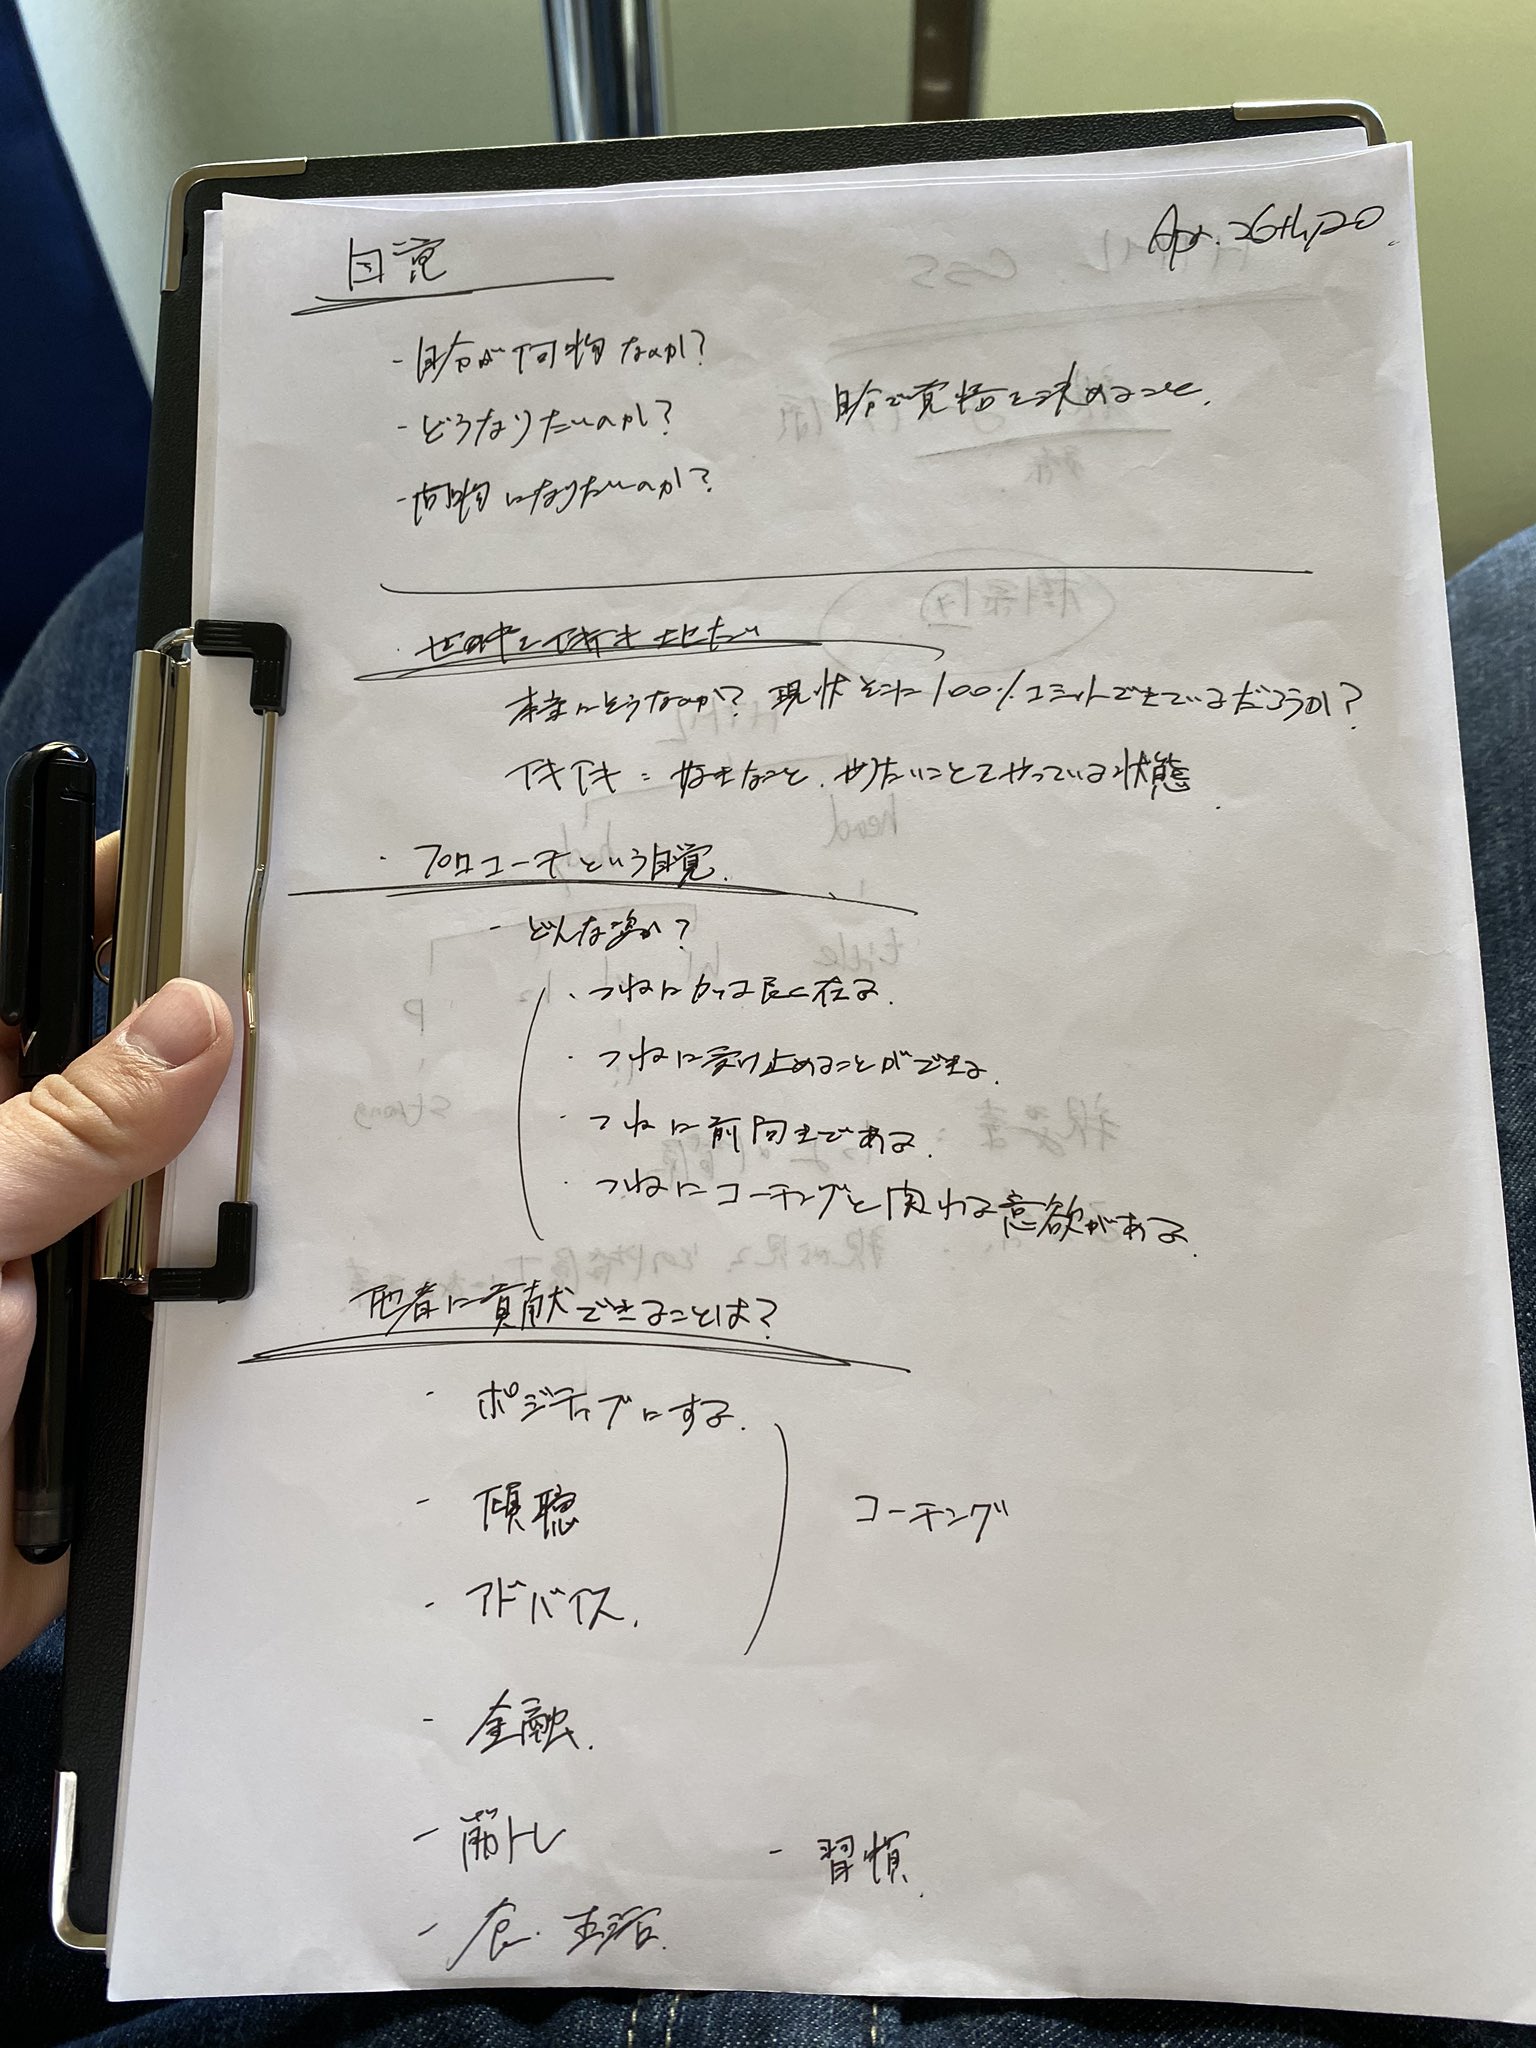 Apr. 26th, 20
自覚
- 自分が何物なのか?
- どうなりたいのか?
- 何物になりたいのか?
自分で覚悟を決めること.
・世の中をイキイキさせたい
本当にそうなのか? 現状そこに100%コミットできているだろうか?
イキイキ : 好きなこと、やりたいことをやっている状態.
・プロコーチという自覚.
- どんな姿か?
・つねにかっこ良く在る.
・つねに受け止めることができる.
・つねに前向きである.
・つねにコーチングと関わる意欲がある.
他者に貢献できることは?
- ポジティブにする.
- 傾聴
- アドバイス.
コーチング
- 金融.
- 筋トレ
- 習慣.
- 食・生活.